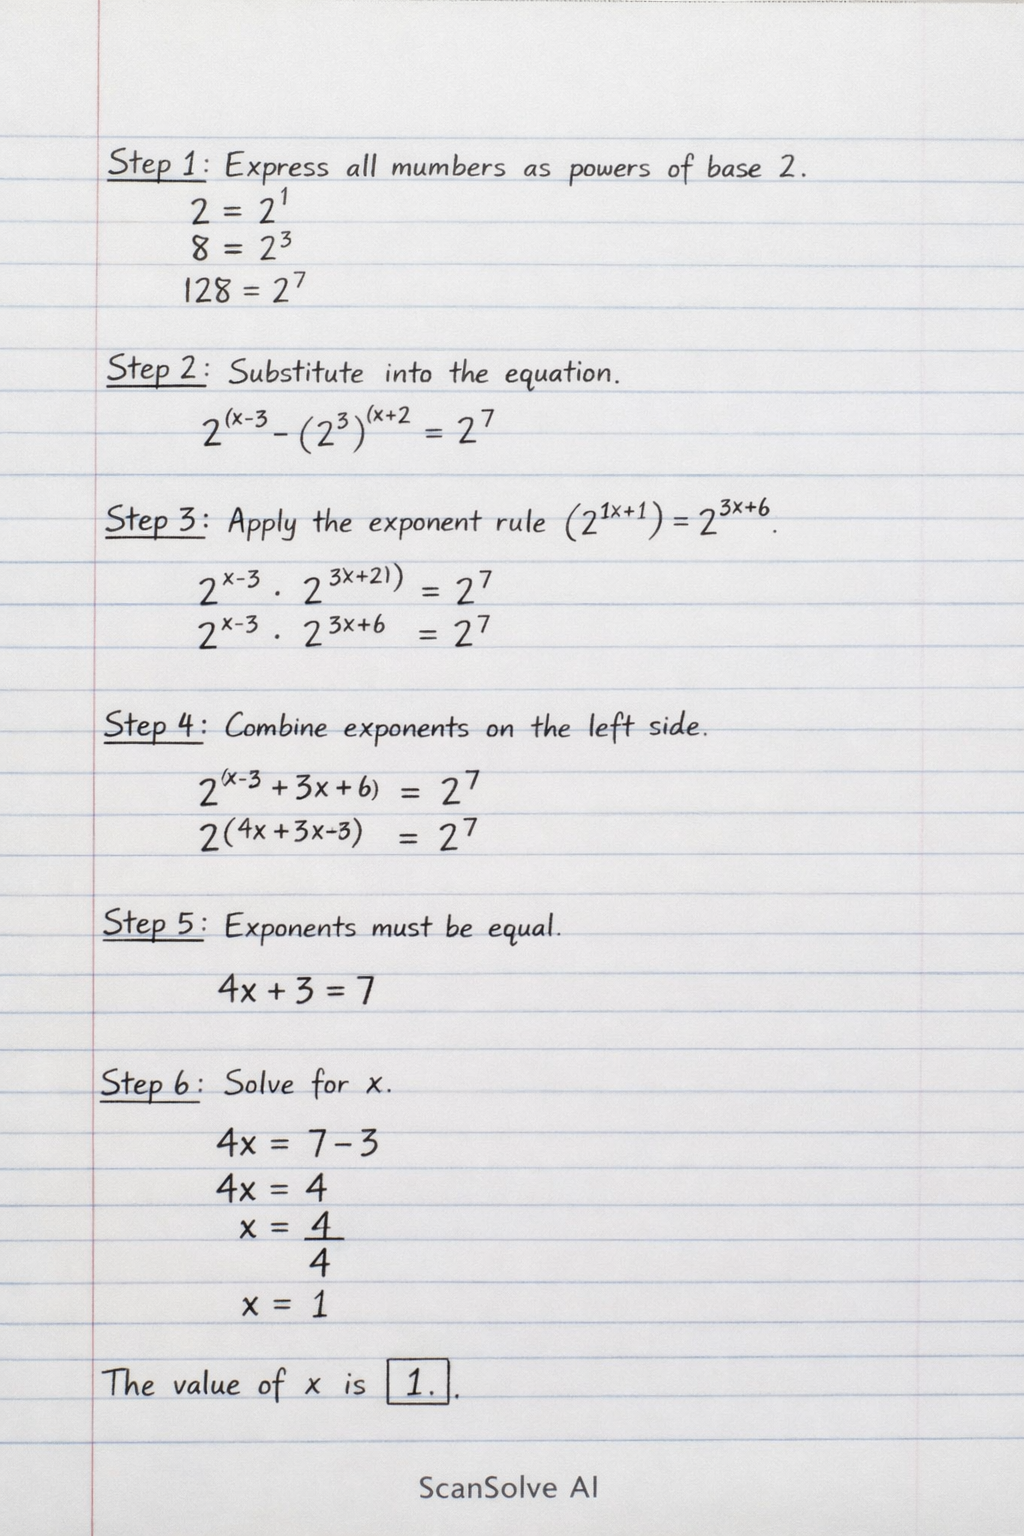 Step 1: Express all mumbers as powers of base 2.
2 = 2^1
8 = 2^3
128 = 2^7
Step 2: Substitute into the equation.
2^(x-3 - (2^3)^(x+2 = 2^7
Step 3: Apply the exponent rule (2^1x+1) = 2^3x+6.
2^x-3 · 2^3x+21) = 2^7
2^x-3 · 2^3x+6 = 2^7
Step 4: Combine exponents on the left side.
2^(x-3 + 3x + 6) = 2^7
2(4x + 3x-3) = 2^7
Step 5: Exponents must be equal.
4x + 3 = 7
Step 6: Solve for x.
4x = 7 - 3
4x = 4
x = 4
4
x = 1
The value of x is 1..
ScanSolve AI